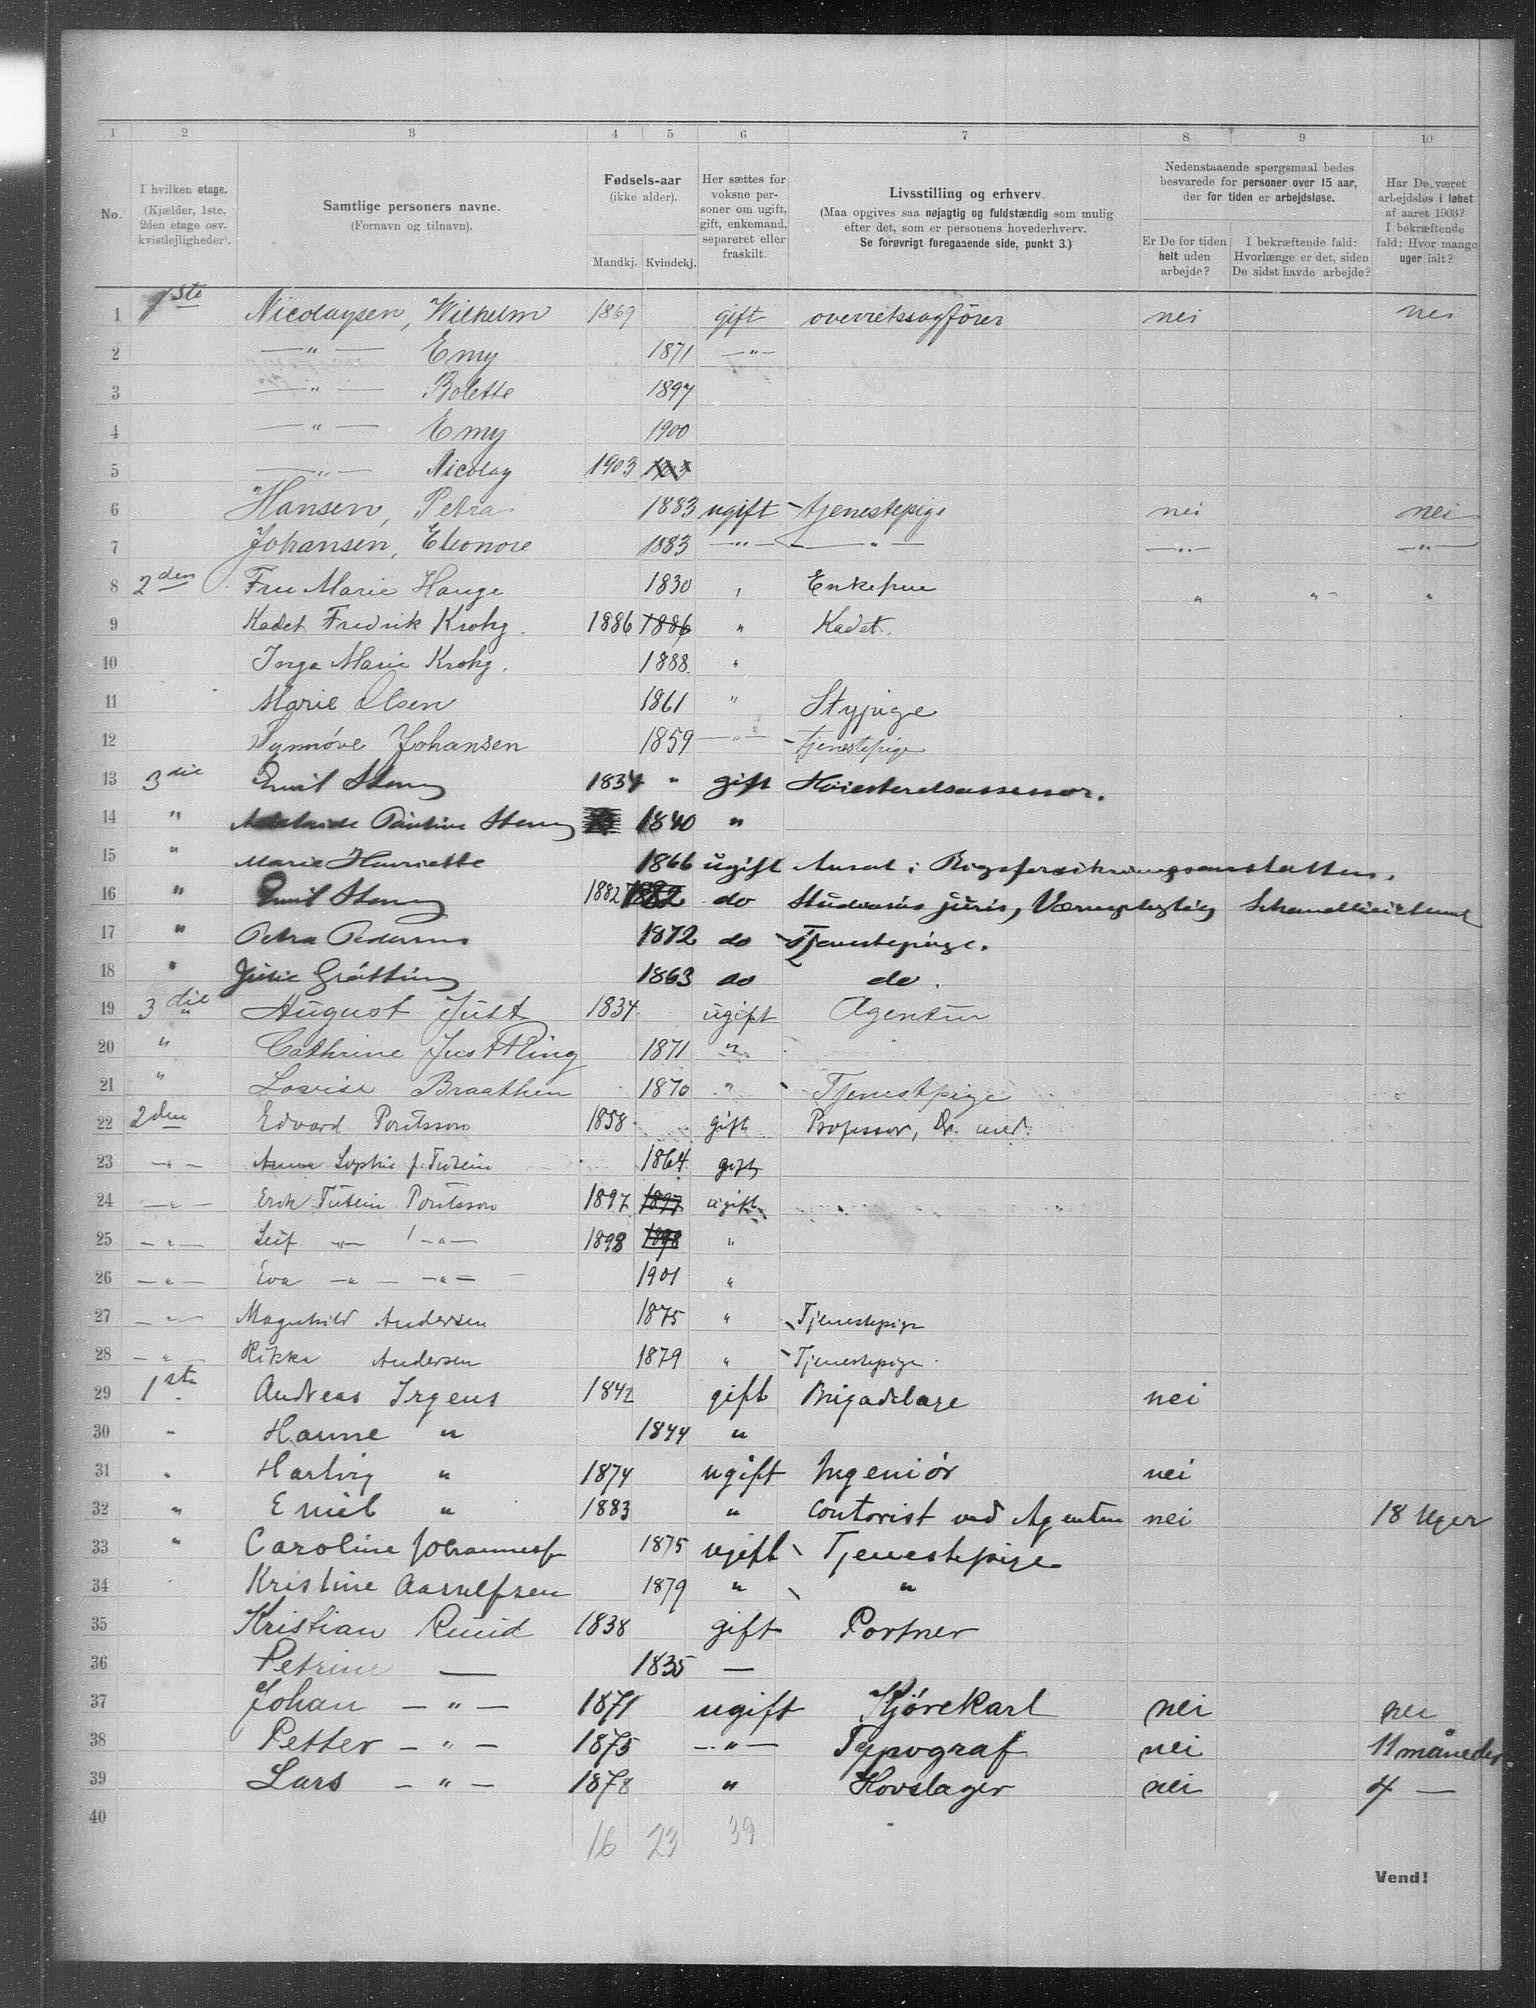 1 2 3 4 5 6 7 8 9 10
No.
I hvilken etage.
(Kjælder, 1ste,
2den etage osv.
kvistlejligheder).
Samtlige personers navne.
(Fornavn og tilnavn).
Fødsels-aar
(ikke alder).
Mandkj. Kvindekj.
Her sættes for
voksne per-
soner om ugift,
gift, enkemand,
separeret eller
fraskilt.
Livsstilling og erhverv.
(Maa opgives saa nøjagtig og fuldstændig som mulig
efter det, som er personens hovederhverv.
Se forøvrigt foregaaende side, punkt 3.)
Nedenstaaende spørgsmaal bedes
besvarede for personer over 15 aar,
der for tiden er arbejdsløse.
Er De for tiden
helt uden
arbejde?
I bekræftende fald:
Hvorlænge er det, siden
De sidst havde arbejde?
Har De været
arbejdsløs i løbet
af aaret 1903?
I bekræftende
fald: Hvor mange
uger ialt?
1 1ste Nicolaysen, Wilhelm 1869 gift overretssagfører nei nei
2 —"— Emy 1871 —"—
3 —"— Bolette 1897
4 —"— Emy 1900
5 —"— Nicolay 1903 1903
6 Hansen, Petra 1883 ugift tjenestepige nei nei
7 Johansen, Eleonore 1883 —"— —"— —"— —"—
8 2den Fru Marie Hauge 1830 " Enkefrue " " "
9 Kadet Fredrik Krohg. 1886 1886 " Kadet.
10 Inga Marie Krohg. 1888 "
11 Marie Olsen 1861 " Stypige
12 Synnöve Johansen 1859 —"— tjenestepige
13 3die Emil Stang 1834 " gift Høiesteretsassessor.
14 " Adelaide Pauline Stang 1840 "
15 " Marie Henriette 1866 ugift Ansat i Rigsforsikringsanstalten.
16 " Emil Stang 1882 1882 do Studiosus juris, Værnepligtig
17 " Petra Pedersen 1872 do Tjenestepige.
18 " Julie Gråtting 1863 do do.
19 3die August Just 1834 ugift Agentur
20 " Cathrine Just Pling 1871 "
21 " Lovise Braathen 1870 " Tjenestpige
22 2den Edvard Poulsson 1858 gift Professor, Dr. med.
23 —"— Anna Sophie f. Tutein 1864 gift
24 —"— Erik Tutein Poulsson 1897 1897 ugift
25 —"— Leif —"— —"— 1898 1898 "
26 —"— Eva —"— —"— 1901 "
27 —"— Magnhild Andersen 1875 " Tjenestepige
28 —"— Rikka Andersen 1879 " Tjenestepige
29 1ste Andreas Irgens 1842 gift Brigadelæge nei
30 " Hanne " 1844 "
31 " Hartvig " 1874 ugift Ingeniör nei
32 " Emil " 1883 " Contorist ved Agentur nei 18 Uger
33 " Caroline Johannesen 1875 ugift Tjenestepige
34 Kristine Aarnelfsen 1879 " "
35 Kristian Ruud 1838 gift Portner
36 Petrine — 1835 —
37 Johan —"— 1871 ugift Kjørekarl nei nei
38 Petter —"— 1875 —"— Typograf nei 11 måneder
39 Lars —"— 1878 " Hovslager nei 4 —
40
16 23 39
Vend!